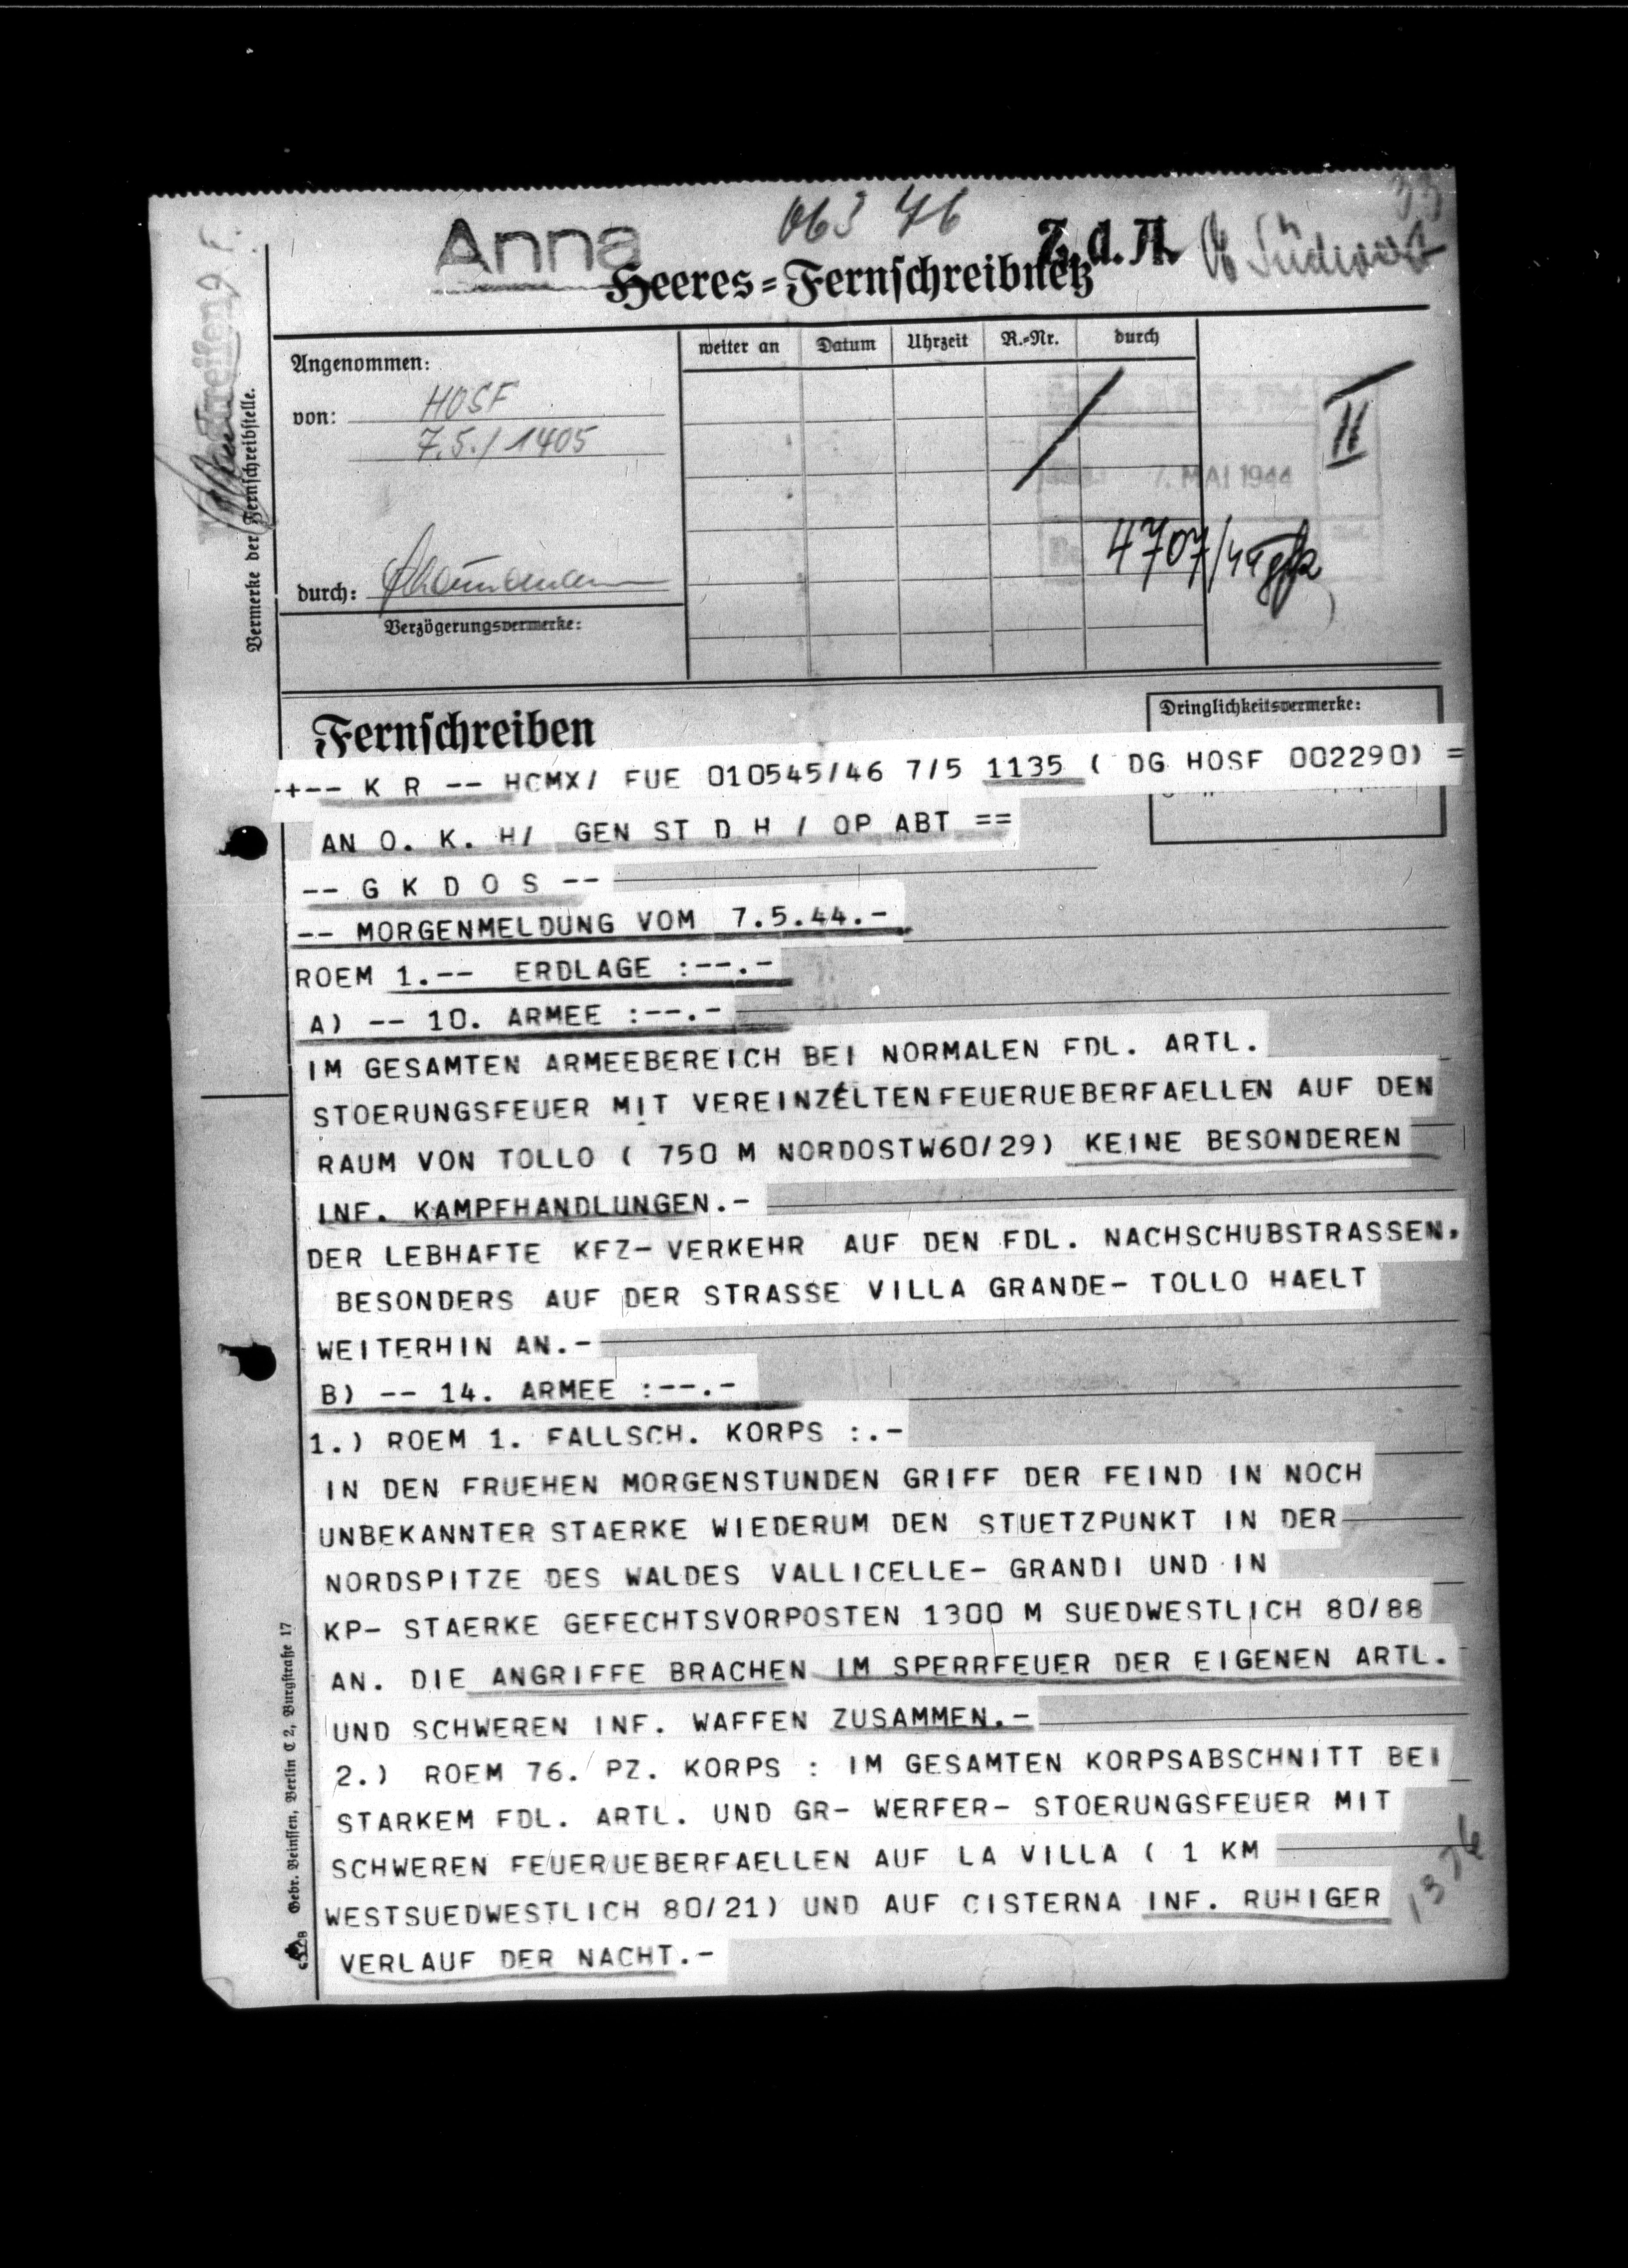 33
Anna 063 46 Z. d. A.
Heeres-Fernschreibnetz
Angenommen:
von: HOSF
7.5./1405
durch:
Verzögerungsvermerke:
weiter an Datum Uhrzeit R.-Nr. durch
II
7. MAI 1944
4707/44
Vermerke der Fernschreibstelle.
Fernschreiben
Dringlichkeitsvermerke:
+-- K R -- HCMX/ FUE 010545/46 7/5 1135 ( DG HOSF 002290) =
AN O. K. H/ GEN ST D H / OP ABT ==
-- G K D O S --
-- MORGENMELDUNG VOM 7.5.44.-
ROEM 1.-- ERDLAGE :--.-
A) -- 10. ARMEE :--.-
IM GESAMTEN ARMEEBEREICH BEI NORMALEN FDL. ARTL.
STOERUNGSFEUER MIT VEREINZELTEN FEUERUEBERFAELLEN AUF DEN
RAUM VON TOLLO ( 750 M NORDOSTW60/29) KEINE BESONDEREN
INF. KAMPFHANDLUNGEN.-
DER LEBHAFTE KFZ- VERKEHR AUF DEN FDL. NACHSCHUBSTRASSEN,
BESONDERS AUF DER STRASSE VILLA GRANDE- TOLLO HAELT
WEITERHIN AN.-
B) -- 14. ARMEE :--.-
1.) ROEM 1. FALLSCH. KORPS :.-
IN DEN FRUEHEN MORGENSTUNDEN GRIFF DER FEIND IN NOCH
UNBEKANNTER STAERKE WIEDERUM DEN STUETZPUNKT IN DER
NORDSPITZE DES WALDES VALLICELLE- GRANDI UND IN
KP- STAERKE GEFECHTSVORPOSTEN 1300 M SUEDWESTLICH 80/88
AN. DIE ANGRIFFE BRACHEN IM SPERRFEUER DER EIGENEN ARTL.
UND SCHWEREN INF. WAFFEN ZUSAMMEN.-
2.) ROEM 76. PZ. KORPS : IM GESAMTEN KORPSABSCHNITT BEI
STARKEM FDL. ARTL. UND GR- WERFER- STOERUNGSFEUER MIT
SCHWEREN FEUERUEBERFAELLEN AUF LA VILLA ( 1 KM
WESTSUEDWESTLICH 80/21) UND AUF CISTERNA INF. RUHIGER
VERLAUF DER NACHT.-
1376
Gebr. Beinssen, Berlin C 2, Burgstraße 17